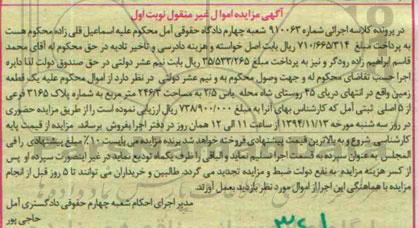 آگهی مزایده اموال غیر منقول نوبت اول
در پرونده کلاسه اجرائی شماره ۹۱۰۰۶۳ شعبه چهارم دادگاه حقوقی آمل محکوم علیه اسماعیل قلی زاده محکوم هست
به پرداخت مبلغ ۷۱۰/۶۶۵/۳۱۴ ریال بابت اصل خواسته و هزینه دادرسی و تأخیر تادیه در حق محکوم له آقای محمد
قاسم ابراهیم زاده رودگر و نیز به پرداخت مبلغ ۳۵/۵۳۳/۲۶۵ ریال بابت نیم عشر دولتی در حق صندوق دولت لذا دایره
اجرا حسب تقاضای محکوم له و جهت وصول محکوم به و نیم عشر دولتی در نظر دارد از اموال محکوم علیه یک قطعه
زمین واقع در انتهای دریای ۴۵ روستای شاه محله یاس ۲/۵ به مساحت ۲۴۶/۳ متر مربع به شماره پلاک ۳۱۶۵ فرعی
از ۵ اصلی ثبتی آمل که کارشناس بهای آنرا به مبلغ ۷۳۸/۹۰۰/۰۰۰ ریال ارزیابی نموده است را از طریق مزایده حضوری
در روز سه شنبه مورخه ۱۳۹۴/۱۱/۱۳ از ساعت ۱۱ الی ۱۲ همان روز در دفتر اجرا بفروش برساند. مزایده از قیمت پایه
کارشناسی شروع و به بالاترین قیمت پیشنهادی فروخته خواهد شد برنده مزایده می بایست ۱۰٪ مبلغ پیشنهادی را فی
المجلس به عنوان سپرده به قسمت اجرا تسلیم نماید و الباقی را ظرف یکماه تودیع نماید در غیر اینصورت سپرده او پس
از کسر هزینه مزایده به نفع دولت ضبط و مزایده تجدید می گردد. طالبین و خریداران می توانند تا ۵ روز قبل از انجام
مزایده با هماهنگی این اجرا از اموال مورد نظر بازدید بعمل آورند.
مدیر اجرای احکام شعبه چهارم حقوقی دادگستری آمل
حاجی پور